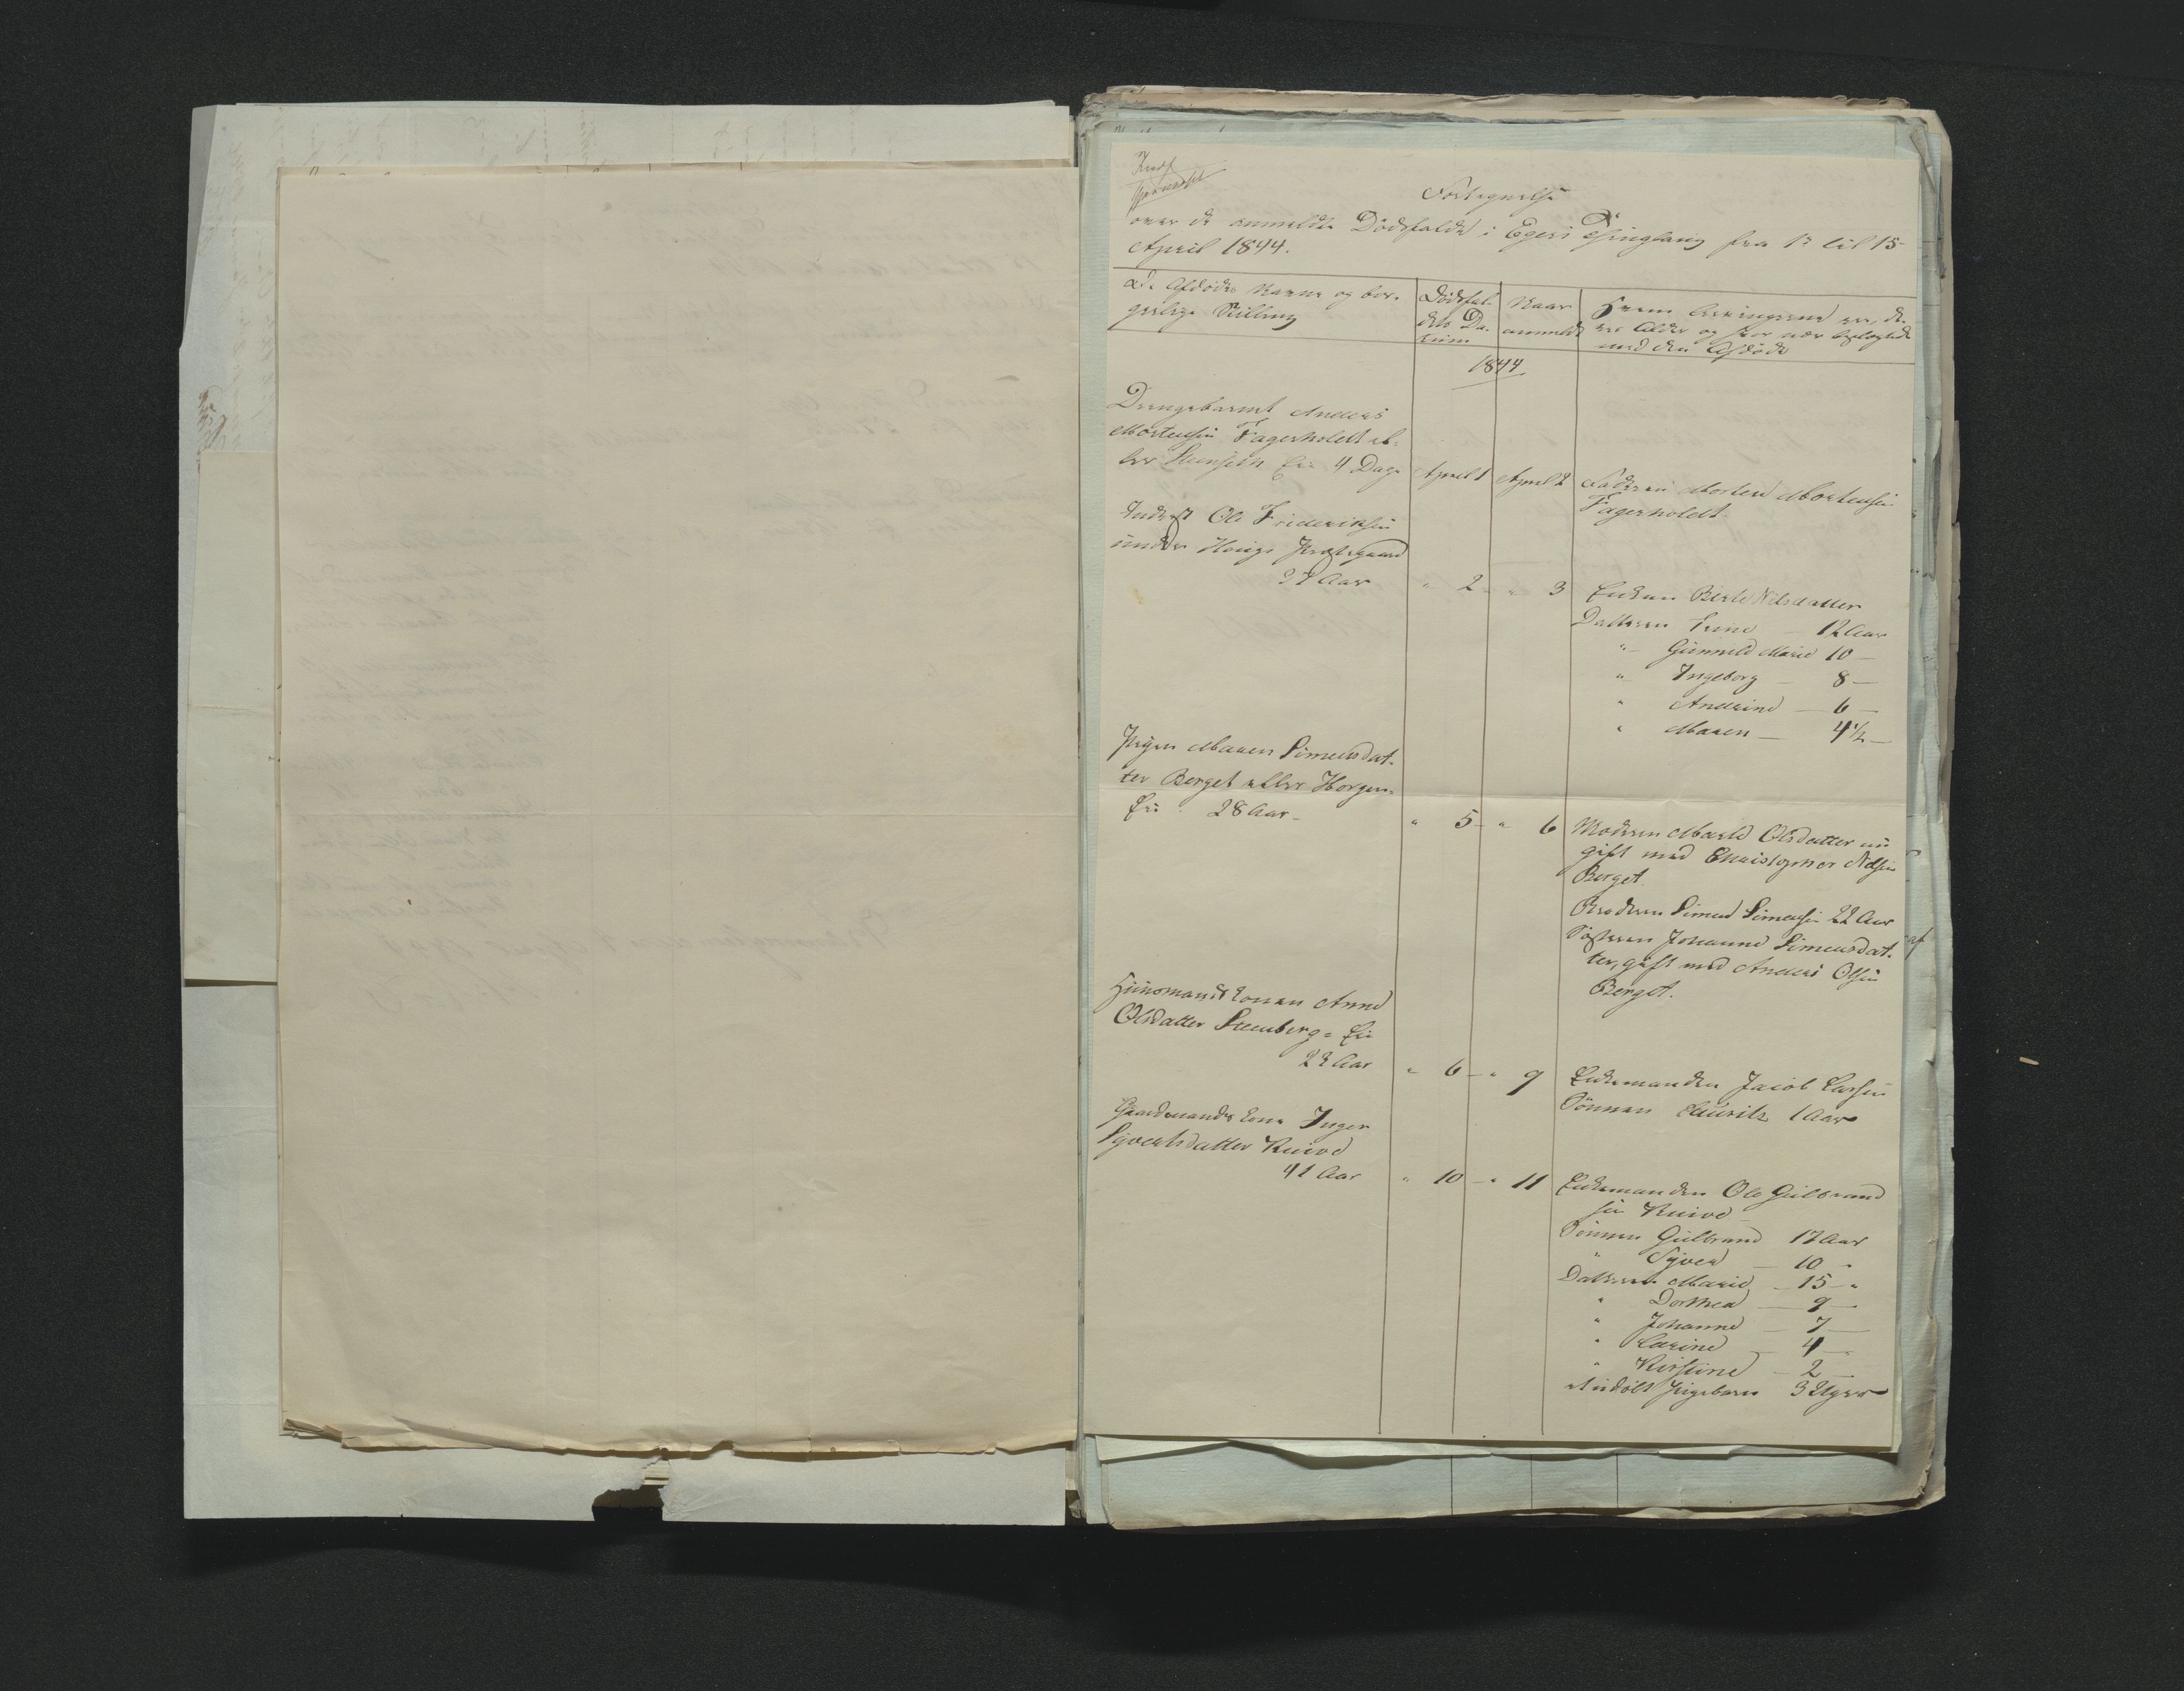 Fortegnelse
over de anmeldte Dødsfalde i Egers Thinglaug fra 1 til 15
April 1844.
De Afdødes Navne og bor-
gerlige Stilling
Dødsfal-
dets Da-
tum
Naar
anmeldt
Hvem Arvingerne ere, de-
res Alder og hvor nær beslægtede
med den Afdøde
1844
Drengebarnet Anders
Mortensen Fagerholdt el-
ler Steenseth Eie 4 Dage
April 1
April 2
Faderen Morten Mortensen
Fagerholdt
Inderst Ole Frideriksen
under Hougs Præstegaard
37 Aar
" 2 -
" 3
Enken Berte Nilsdatter
Datteren Trine — 12 Aar
" Gunnild Marie 10 —
" Ingeborg — 8 —
" Andrine — 6 —
" Maren — 4 1/2 —
Pigen Maren Simensdat-
ter Berget eller Horgen-
Eie 28 Aar -
" 5 -
" 6
Moderen Marte Olsdatter nu
gift med Christopher Nilsen
Berget.
Broderen Simen Simensen 22 Aar
Søsteren Johanne Simensdat-
ter, gift med Anders Olsen
Berget.
Huusmands Konen Anne
Olsdatter Steenberg - Eie
22 Aar
" 6 -
" 9
Enkemanden Jacob Larsen
Sønnen Lauritz 1 Aar
Gaardmands Kone Inger
Syvertsdatter Kuive
41 Aar
" 10 -
" 11
Enkemanden Ole Gulbrand
sen Kuive
Sønnen Gulbrand 17 Aar
" Syver — 10 "
Datteren Marie — 15 "
" Dorthea — 9 —
" Johanne — 7 —
" Karine — 4 —
" Kirstine — 2 —
et udøbt Pigebarn 3 Uger